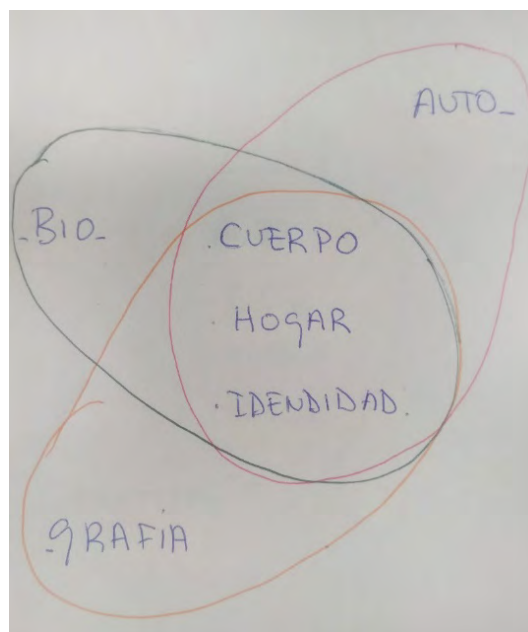 AUTO_
_BIO_
. CUERPO
. HOgAR
. IDENDIDAD.
_gRAFÍA